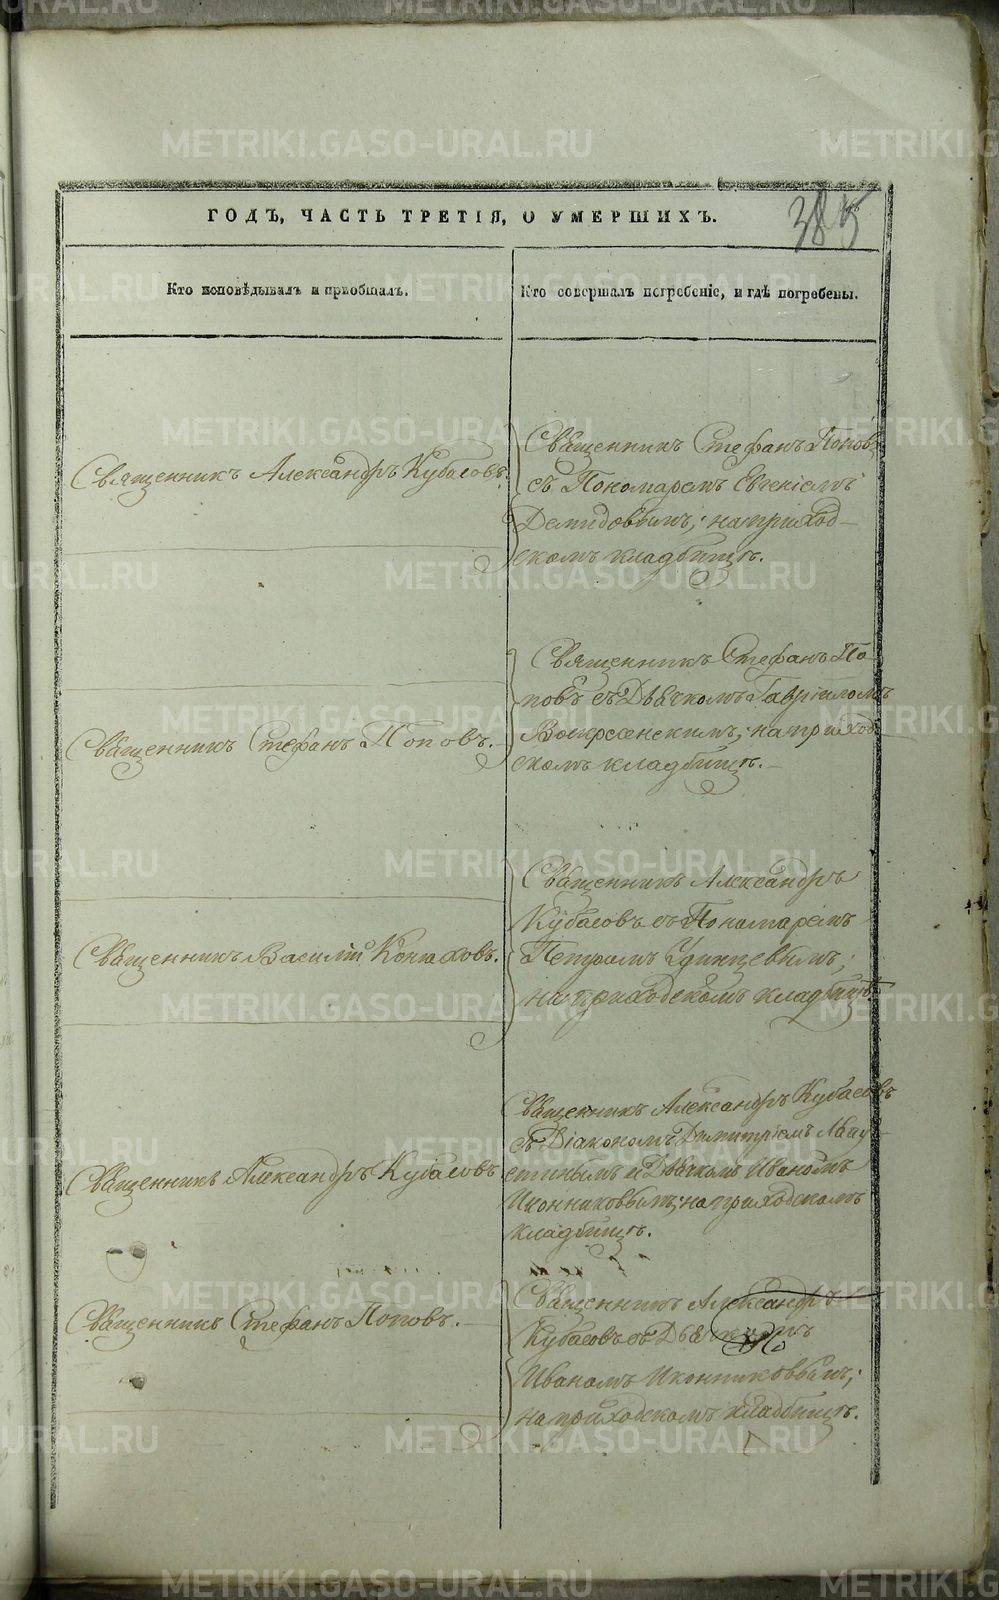 385
ГОДЪ, ЧАСТЬ ТРЕТІЯ, О УМЕРШИХЪ.
Кто исповѣдывалъ и пріобщалъ.
Кто совершалъ погребеніе, и гдѣ погребены.
Священникъ Александръ Кубасовъ.
Священникъ Стефанъ Поповъ
съ Пономаремъ Евгеніемъ
Демидовымъ; на приход-
скомъ кладбищѣ.
Священникъ Стефанъ Поповъ.
Священникъ Стефанъ По
повъ съ Дьячкомъ Гавріиломъ
Воскресенскимъ; на приход
скомъ кладбищѣ.
Священникъ Василій Конюховъ.
Священникъ Александръ
Кубасовъ съ Пономаремъ
Петромъ Удинцевымъ;
на приходскомъ кладбищѣ.
Священникъ Александръ Кубасовъ
Священникъ Александръ Кубасовъ
съ Діакономъ Димитріемъ
и Дьячкомъ Иваномъ
Иконниковымъ; на приходскомъ
кладбищѣ.
Священникъ Стефанъ Поповъ.
Священникъ Александръ
Кубасовъ съ Дьячкомъ
Иваномъ Иконниковымъ;
на приходскомъ кладбищѣ.
METRIKI.GASO-URAL.RU